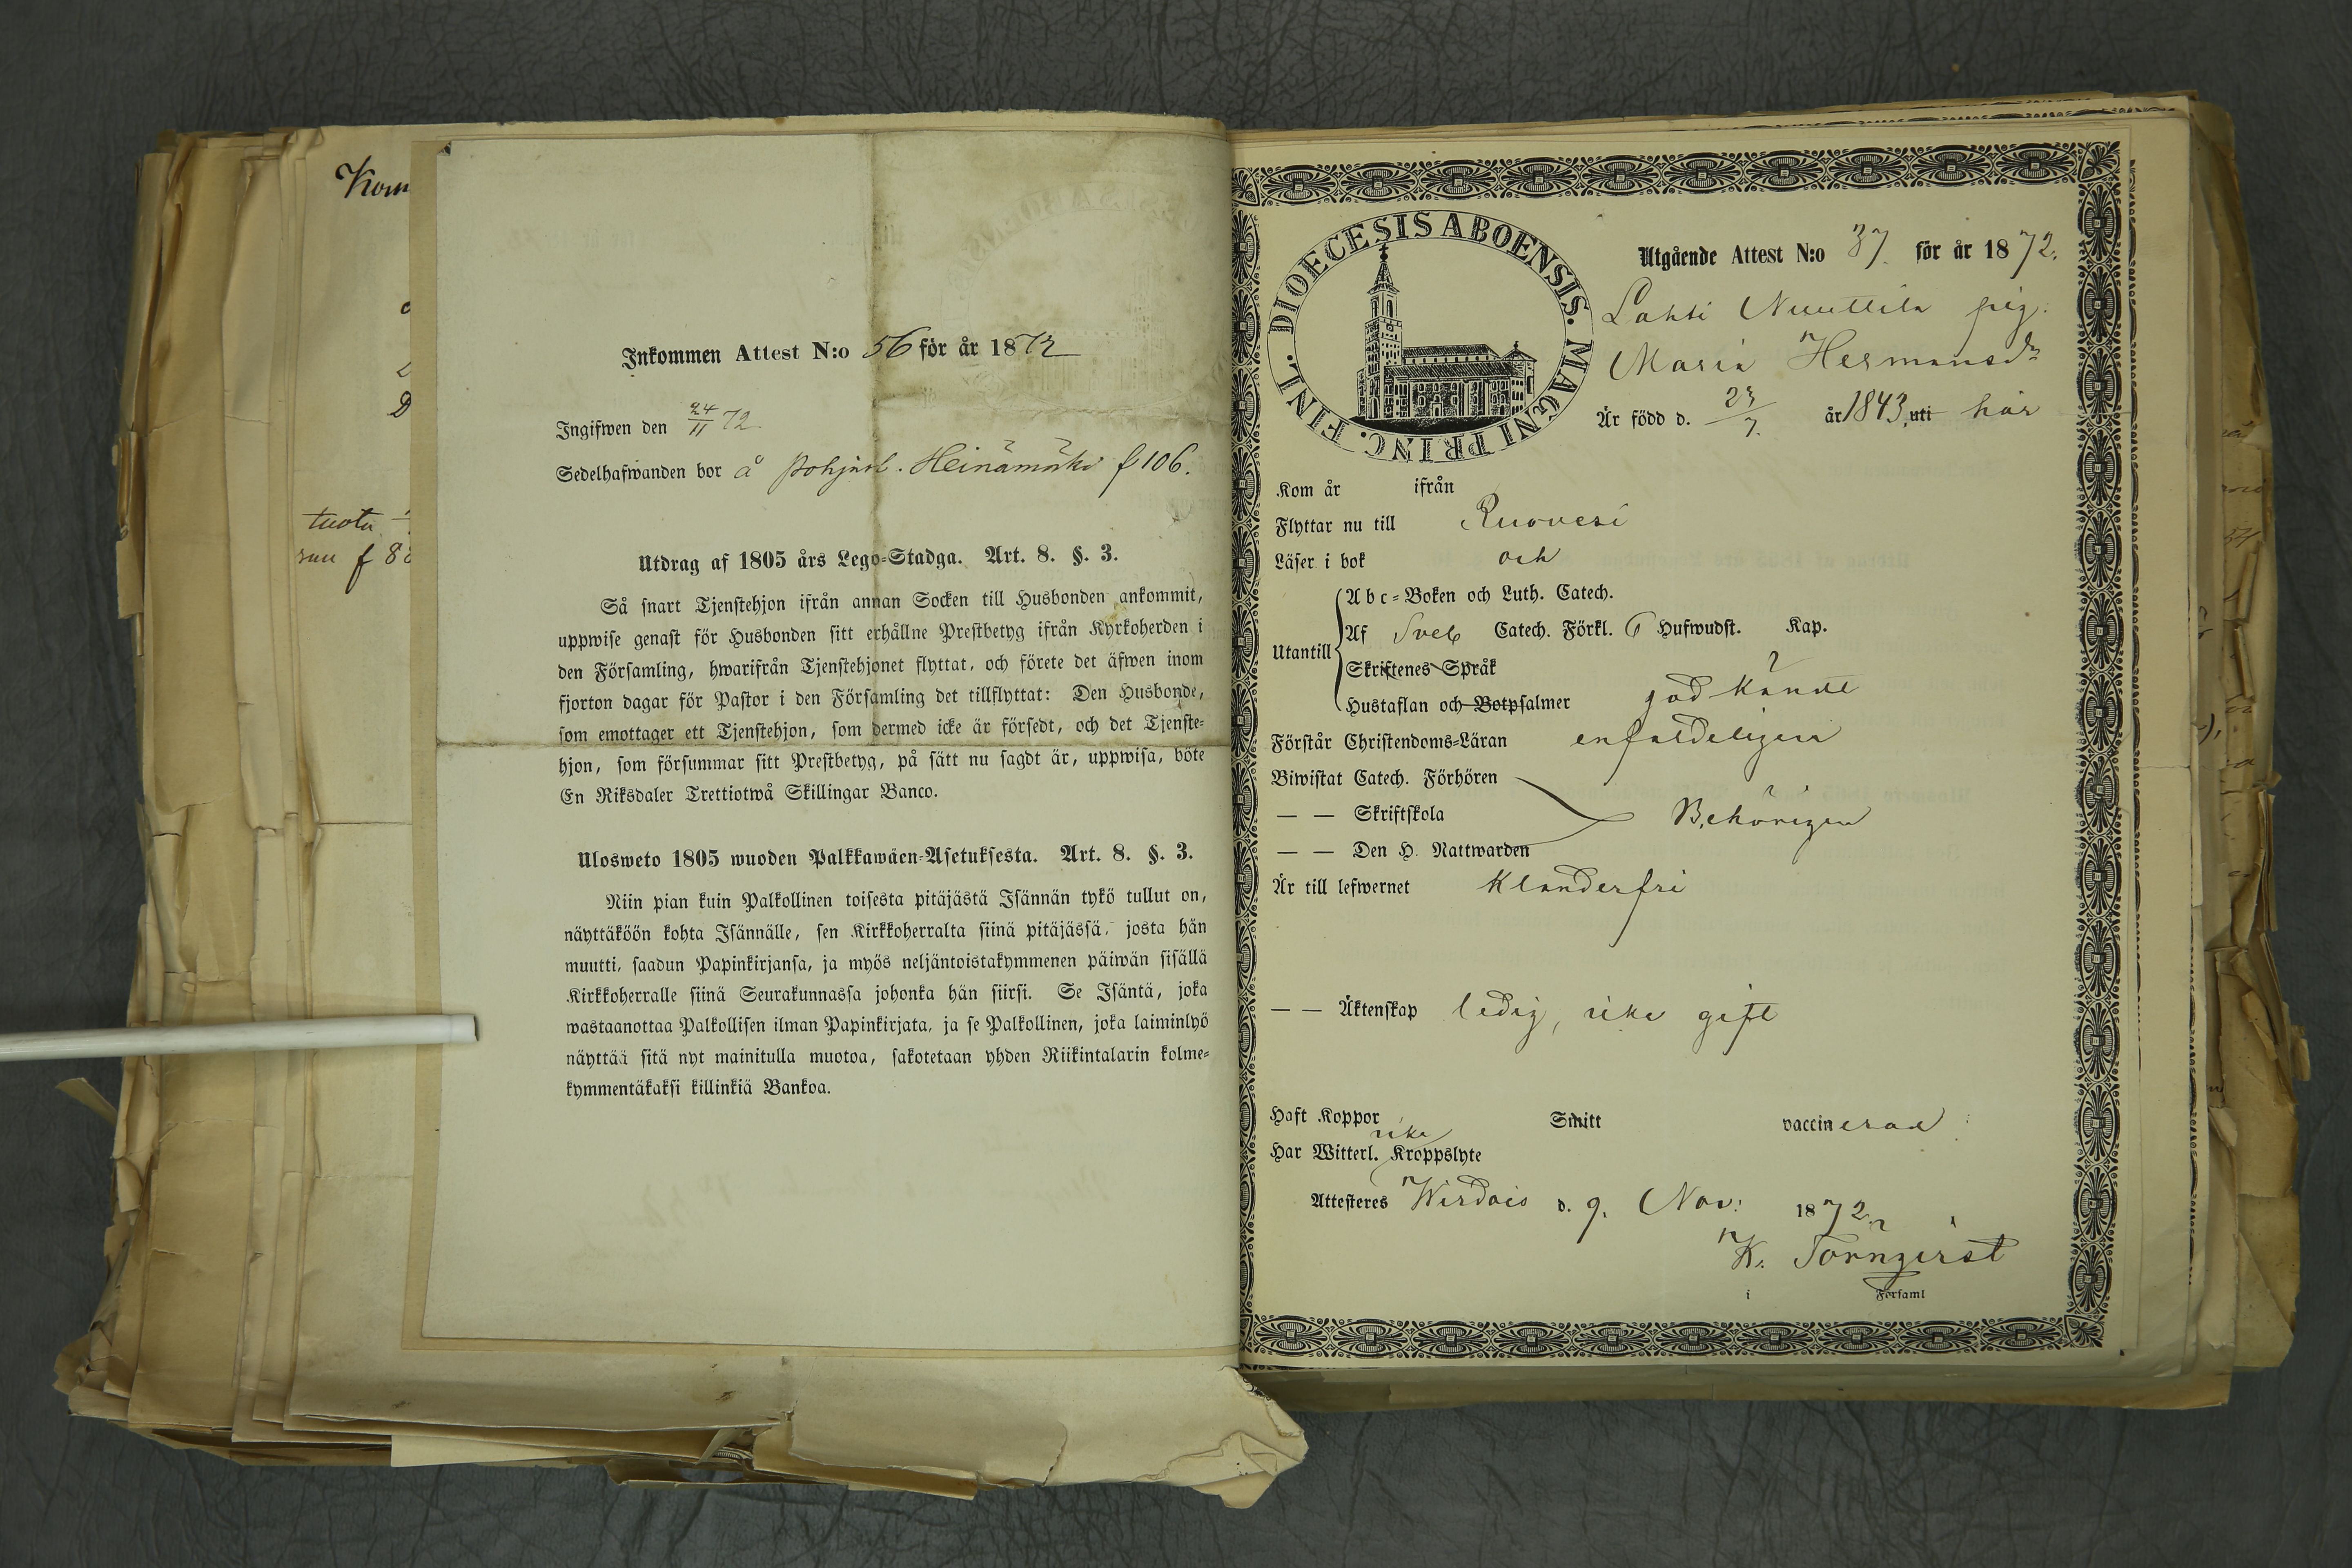 Kom
tuota
f 88
D
Inkommen Attest N:o 56 för år 1872
Ingifwen den 24/11 72.
Sedelhafwanden bor å Pohjasl. Heinämäki f 106.
Utdrag af 1805 års Lego-Stadga. Art. 8. §. 3.
Så snart Tjenstehjon ifrån annan Socken till Husbonden ankommit,
uppwise genast för Husbonden sitt erhållne Prestbetyg ifrån Kyrkoherden i
den Församling, hwarifrån Tjenstehjonet flyttat, och förete det äfwen inom
fjorton dagar för Pastor i den Församling det tillflyttat: Den Husbonde,
som emottager ett Tjenstehjon, som dermed icke är försedt, och det Tjenste-
hjon, som försummar sitt Prestbetyg, på sätt nu sagdt är, uppwisa, böte
En Riksdaler Trettiotwå Skillingar Banco.
Ulosweto 1805 wuoden Palkkawäen-Asetuksesta. Art. 8. §. 3.
Niin pian kuin Palkollinen toisesta pitäjästä Isännän tykö tullut on,
näyttäköön kohta Isännälle, sen Kirkkoherralta siinä pitäjässä, josta hän
muutti, saadun Papinkirjansa, ja myös neljäntoistakymmenen päiwän sisällä
Kirkkoherralle siinä Seurakunnassa johonka hän siirsi. Se Isäntä, joka
wastaanottaa Palkollisen ilman Papinkirjata, ja se Palkollinen, joka laiminlyö
näyttää sitä nyt mainitulla muotoa, sakotetaan yhden Riikintalarin kolme-
kymmentäkaksi killinkiä Bankoa.
DIOECESIS ABOENSIS. MAGNI PRINC. FINL.
Utgående Attest N:o 37. för år 1872.
Lahti Nuuttila pig.
Maria Hermansdr
Är född d. 23/7. år 1843, uti här
Kom år ifrån
Flyttar nu till Ruovesi
Läser i bok och
Abc-Boken och Luth. Catech.
Utantill Af Sveb Catech. Förkl. 6 Hufwudst. Kap.
Skriftenes Språk
Hustaflan och Botpsalmer godkändt
Förstår Christendoms-Läran enfaldeligen
Biwistat Catech. Förhören
— — Skriftskola Behörigen
— — Den H. Nattwarden
Är till lefwernet Klanderfri
— — Äktenskap ledig, icke gift
Haft Koppor Smitt vaccinerad
Har Witterl. icke Kroppslyte
Attesteres Wirdois d. 9. Nov: 1872.
K. Törnqvist
i Församl